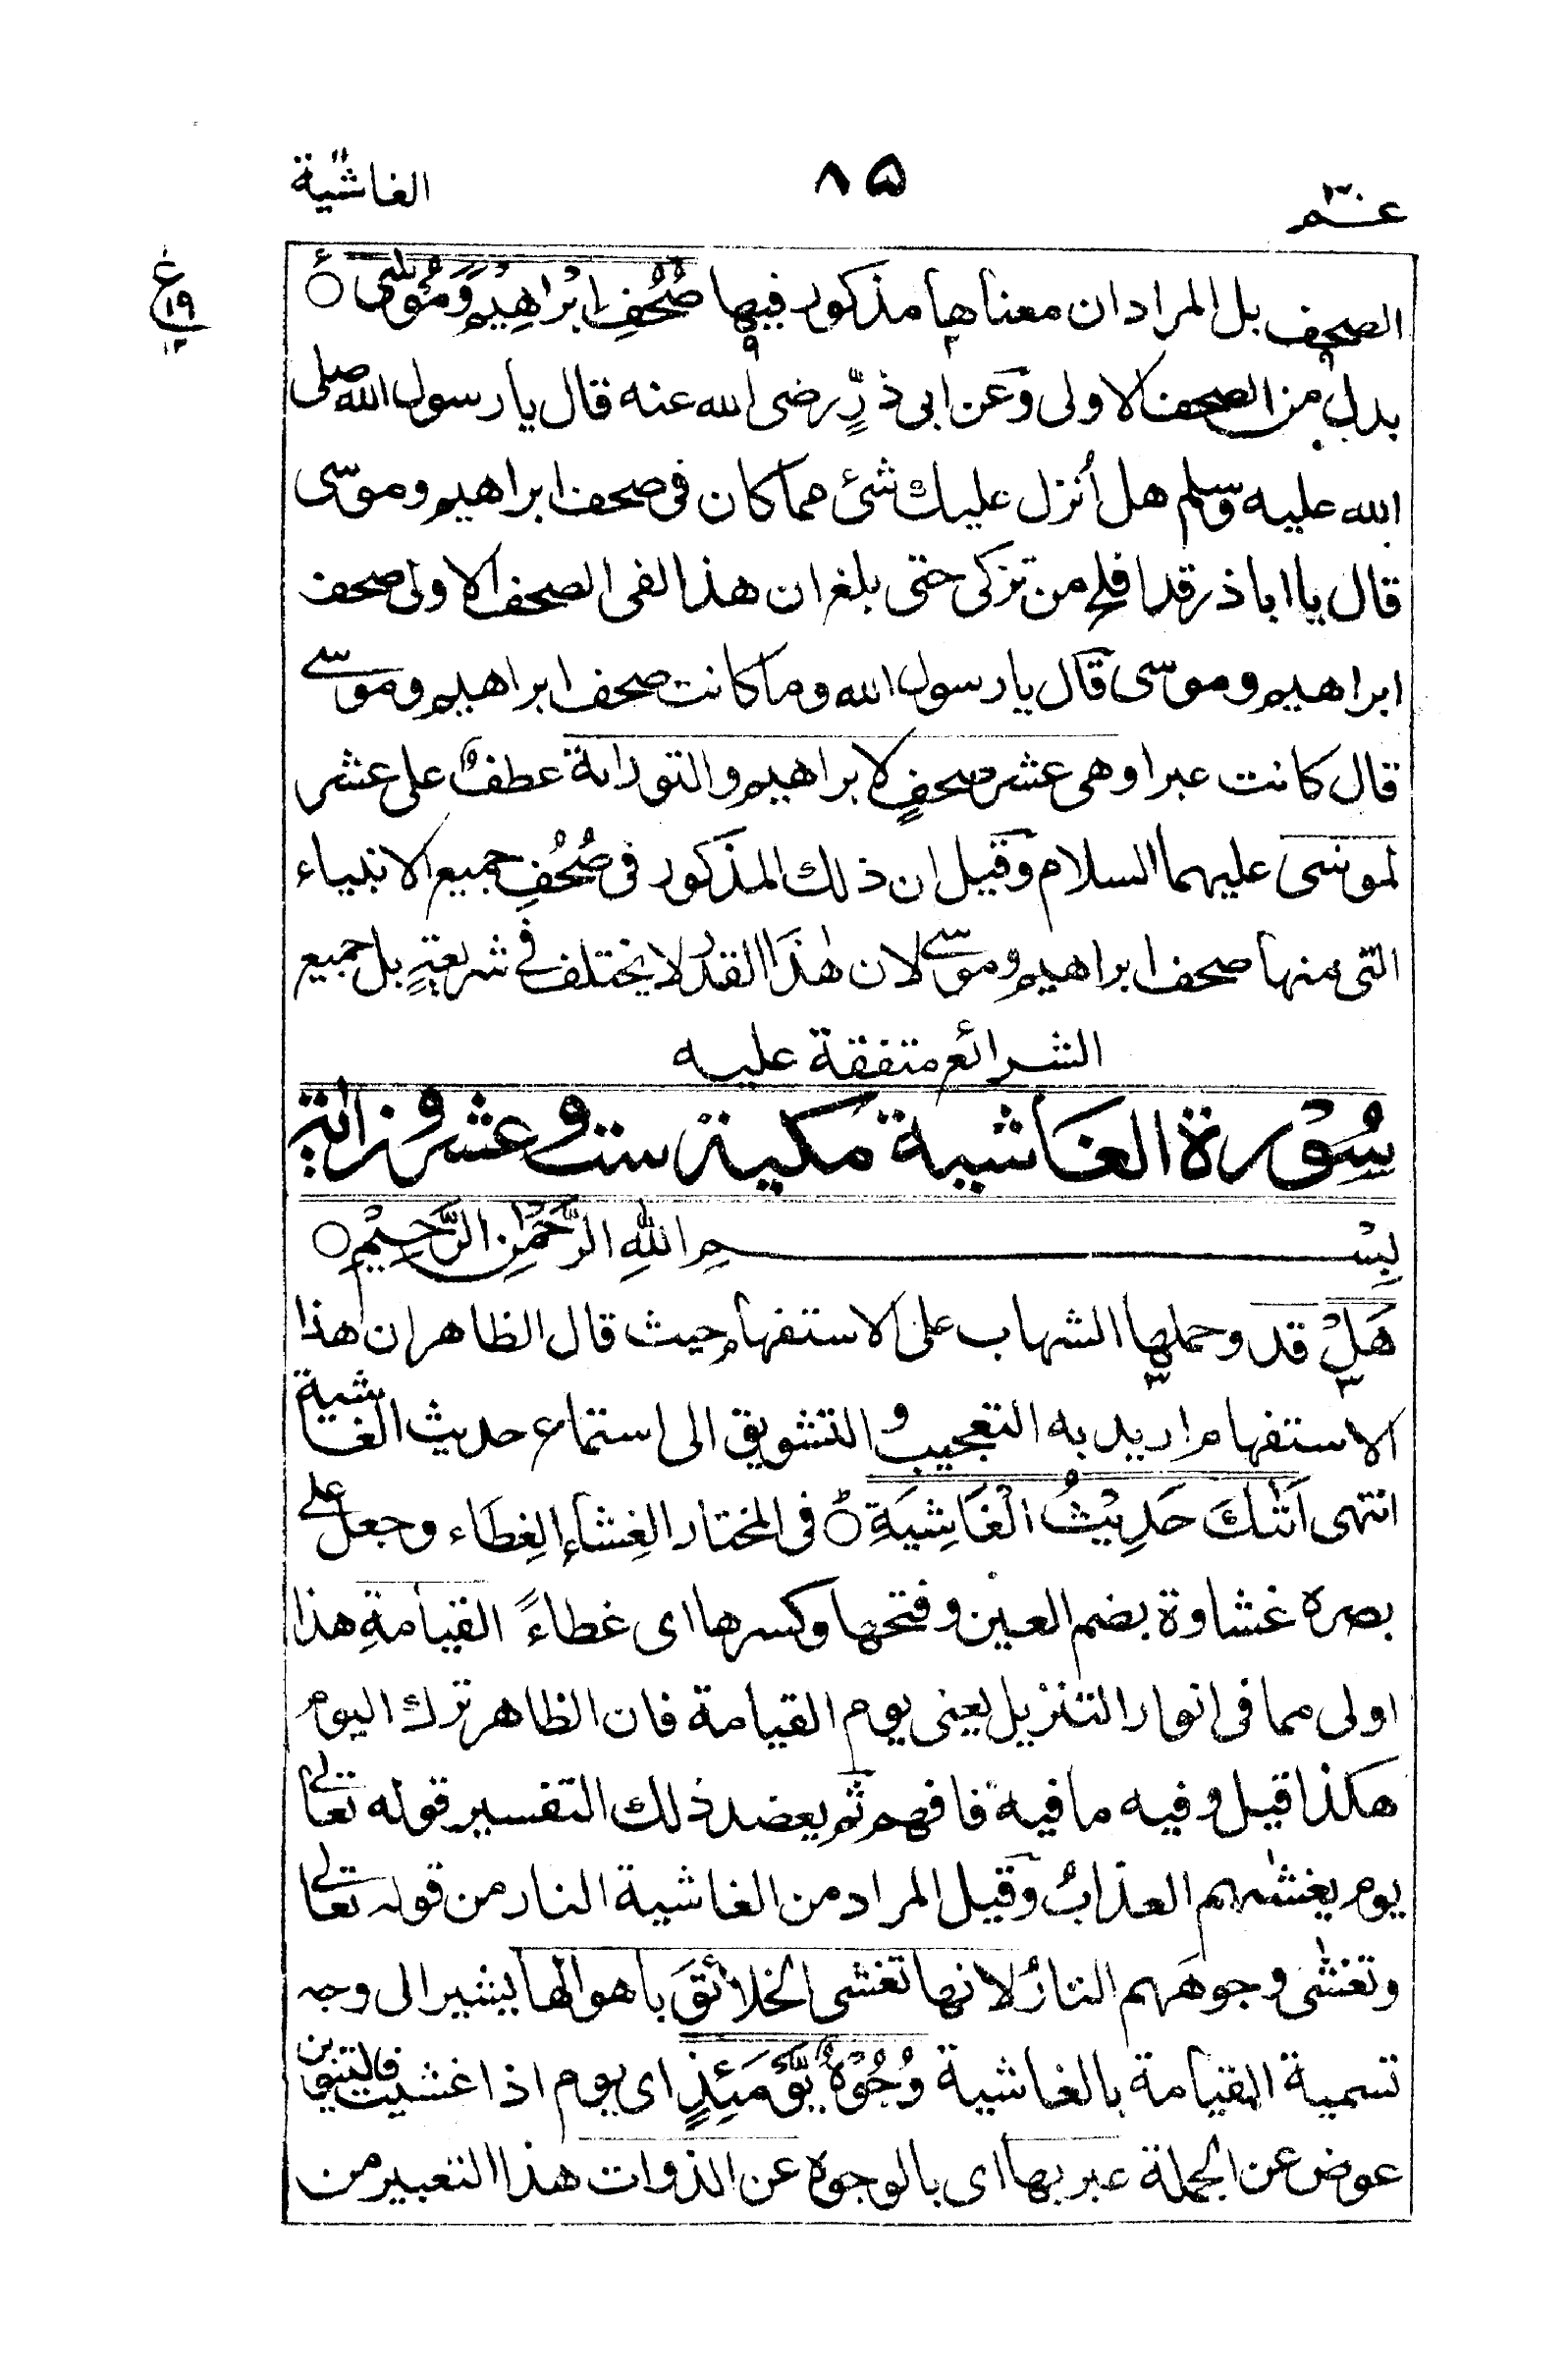 عم ٣٠
٨٥
الغاشية
الصحف بل المراد ان معناها مذكور فيها صُحُفِ اِبْرٰهِيْمَ وَمُوْسٰى ○ ع
بدل من الصحف الاولى وَعن ابى ذرٍّ رضى الله عنه قال يا رسول الله صلى
الله عليه وسلم هل اُنزل عليك شئ مما كان فى صحف ابراهيم وموسى
قال يا ابا ذر قد افلح من تزكى حتى بلغ ان هذا لفى الصحف الاولى صحف
ابراهيم وموسى قال يا رسول الله وما كانت صحف ابراهيم وموسى
قال كانت عبرا وهى عشر صحفٍ لابراهيم والتوراىة عطفٌ على عشر
لموسى عليهما السلام وقيل ان ذلك المذكور فى صُحُفِ جميع الانبياء
التى منها صحف ابراهيم وموسى لان هٰذَا القدر لا يختلف فى شريعةٍ بل جميع
الشرائع متفقة عليه
سُوْرة الغَاشية مكية ست وعشرون اٰية
بِسْمِ اللهِ الرَّحْمٰنِ الرَّحِيْمِ ○
هَلْ قد وحملها الشهاب على الاستفهام حيث قال الظاهر ان هذا
الاستفهام اريد به التعجيب والتشويق الى استماع حديث الغاشية
انتهى اَتٰىكَ حَدِيْثُ الْغَاشِيَةِ ○ فى المختار الغِشاء الغِطَاء وجعل على
بصره غشاوة بضم العين وفتحها وكسرها اى غطاءً القيامةِ هذا
اولى مما فى انوار التنزيل يعنى يوم القيامة فان الظاهر ترك اليوم
هكذا قيل وفيه ما فيه فافهم ثم يعضد ذلك التفسير قوله تعالى
يوم يغشٰىهم العذابُ وقيل المراد من الغاشية النار من قوله تعالى
وتغشٰى وجوهَهم النارُ لانها تغشى الخلائقَ باهوالها يشير الى وجه
تسمية القيامة بالغاشية وُجُوْهٌ يَّوْمَئِذٍ اى يوم اذا غشيت فالتنوين
عوض عن الجملة عبر بها اى بالوجوه عن الذوات هذا التعبير من